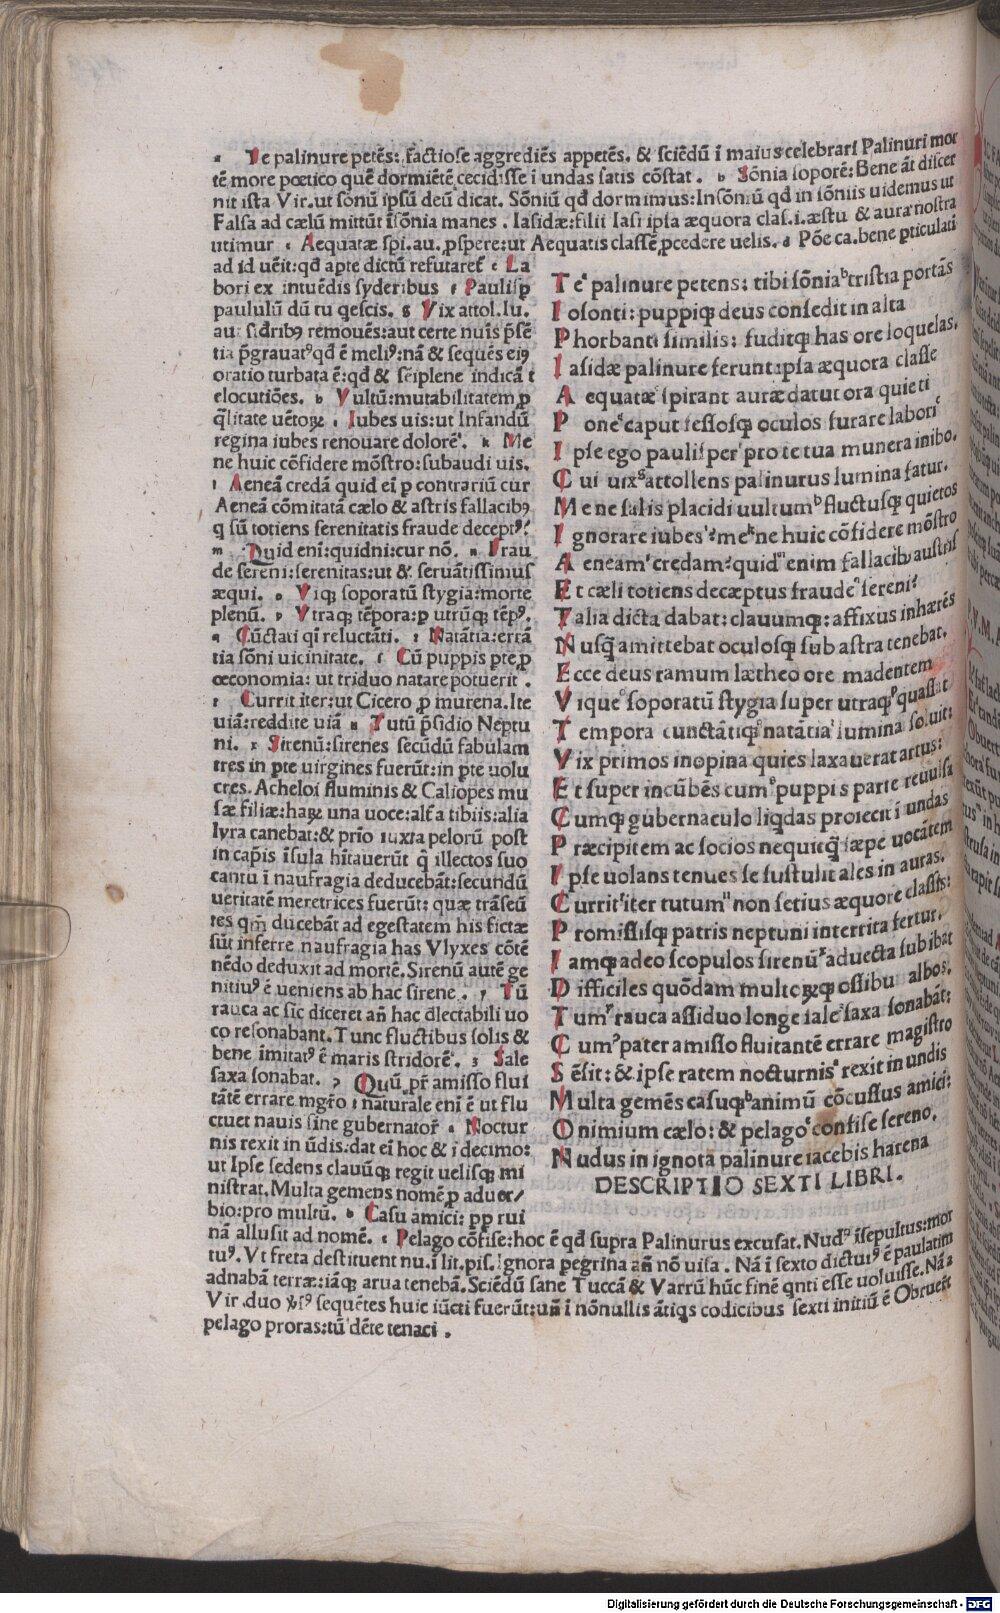 a Te palinure petēs: factiose aggrediēs appetēs. & sciēdū ī maius celebrari Palinuri mor
tē more pœtico quē dormiētē cecidisse ī undas satis cōstat. b Sōnia soporē: Bene āt discer
nit ista Vir. ut sonū ipsū deū dicat. Sōniū qđ dormimus: Insōniū qđ in sōniis uidemus ut
Falsa ad cælū mittūt īsōnia manes. Iasidæ: filii Iasi ipsa æquora clas. i. æstu & aura nostra
utimur c Aequatæ spi. au. ꝓspere: ut Aequatis classē ꝓcedere uelis. d Pōe ca. bene ꝑticulati
ad id uēit: qđ apte dictū refutaret e La
bori ex intuēdis syderibus f Paulisꝑ
paululū dū tu qescis. g Vix attol. lu.
aut sıdribꝰ remouēs: aut certe nuīs p̄sē
tia p̄grauatꝰ qđ ē meliꝰ: nā & sequēs eiꝰ
oratio turbata ē: qđ & sēiplene indicāt
elocutiōes. h Vultū: mutabilitatem ꝓ
q̄litate uētoꝝ. i Iubes uis: ut Infandū
regina iubes renouare dolorē. k Me
ne huic cōfidere mōstro: subaudi uis.
l Aeneā credā quid eī ꝑ contrariū cur
Aeneā cōmitatā cælo & astris fallacibꝰ
q sū totiens serenitatis fraude deceptꝰ?
m Quid eni: quidni: cur nō. n Frau
de sereni: serenitas: ut & seruātissimus
æqui. o Viqꝫ soporatū stygia: morte
plenū. p Vtraqꝫ tēpora: ꝓ utrūqꝫ tēpꝰ.
q Cūctati qi reluctāti. r Natātia: errā
tia sōni uicinitate. s Cū puppis ꝑte, ꝓ
œconomia: ut triduo natare potuerit.
t Currit iter: ut Cicero ꝓ murena. Ite
uiā: reddite uiā u Tutū p̄sidio Neptu
ni. x Sirenū: sirenes secūdū fabulam
tres in ꝑte uirgines fuerūt: in ꝑte uolu
cres. Acheloi fluminis & Caliopes mu
sæ filiæ: haꝝ una uoce: altā tibiis: alia
lyra canebat: & prīo iuxta pelorū post
in capīs īsula hītauerūt q̄ illectos suo
cantu ī naufragia deducebāt: secundū
ueritatē meretrices fuerūt: quæ trāseū
tes qm̄ ducebāt ad egestatem his fictæ
sūt inferre naufragia has Vlyxes cōtē
nēdo deduxit ad mortē. Sirenū autē ge
nitiuꝰ ē ueniens ab hac sirene. y Tū
rauca ac sic diceret an̄ hac dlectabili uo
co resonabant. Tunc fluctibus solis &
bene īmitatꝰ ē maris stridorē. z Sale
saxa sonabat. ꝰ Quū pr̄ amisso flui
tātē errare mgr̄o ı naturale eni ē ut flu
ctuet nauis sine gubernatorē a Noctur
nis rexit in ūdis: dat eī hoc & i decimo:
ut Ipse sedens clauūqꝫ regit uelisqꝫ mi
nistrat. Multa gemens nomē ꝓ aduer/
bio: pro multū. b Casu amici: ꝓꝑ rui
nā allusit ad nomē. c Pelago cōfise: hoc ē qđ supra Palinurus excusat. Nudꝰ īsepultus: mor
tuꝰ. Vt freta destituent nu. ī lit. pis. Ignora ꝑegrina an̄ nō uisa. Nā ī sexto dicturꝰ ē paulatim
adnabā terræ: iāqꝫ arua tenebā. Sciēdū sane Tuccā & Varrū hūc finē qnti esse uoluisse. Nā a
Vir. duo ꝟsꝰ sequētes huic iūcti fuerūt: un̄ ī nōnullis ātiqs codicibus sexti initiū ē Obruerēt
pelago proras: tū dēte tenaci.
Te palinure petens: tibi sōnia tristia portās
Iosonti: puppiqꝫ deus consedit in alta
Phorbanti similis: fuditqꝫ has ore loquelas.
Iasidæ palinure ferunt ipsa æquora classe
Aequatæ spirant auræ datur ora quieti
Pone caput fessosqꝫ oculos furare labori
Ipse ego paulisper pro te tua munera inibo.
Cui uix attollens palinurus lumina fatur.
Mene salis placidi uultum fluctusqꝫ quietos
Ignorare iubes? mene huic cōfidere mōstro
Aeneam credam? quid enim fallacibꝰ austris
Et cæli totiens decæptus fraude sereni?
Talia dicta dabat: clauumqꝫ: affixus inhærēs
Nusq̄ amittebat oculosqꝫ sub astra tenebat.
Ecce deus ramum lætheo ore madentem
Vique soporatū stygia super utraqꝫ quassat
Tempora cunctātiqꝫ natātia lumina soluit:
Vix primos inopina quies laxauerat artus:
Et super incūbēs cum puppis parte reuulsa
Cumqꝫ gubernaculo liqdas proiecit ī undas
Præcipitem ac socios nequicq̄ sæpe uocātem
Ipse uolans tenues se sustulit ales in auras.
Currit iter tutum non setius æquore classis:
Promissisqꝫ patris neptuni interrita fertur.
Iamqꝫ adeo scopulos sirenū aduecta subibat
Difficiles quōdam multoꝝqꝫ ossibu albos.
Tum rauca assiduo longe sale saxa sonabāt:
Cum pater amisso fluitantē errare magistro
Sēsit: & ipse ratem nocturnis rexit in undis
Multa gemēs casuqꝫ animū cōcussus amici:
O nimium cælo: & pelago confise sereno.
Nudus in ignota palinure iacebis harena
DESCRIPTIO SEXTI LIBRI.
Digitalisierung gefördert durch die Deutsche Forschungsgemeinschaft - DFG